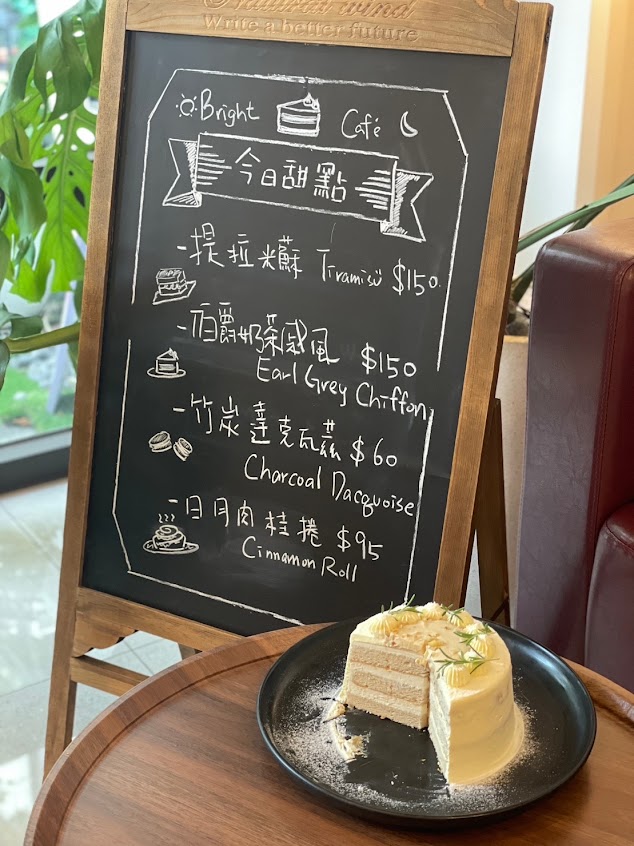 Write a better future
Bright Café
今日甜點
-提拉米蘇 Tiramisù $150
-伯爵奶茶戚風 $150
Earl Grey Chiffon
-竹炭達克瓦茲 $60
Charcoal Dacquoise
-日月肉桂捲 $95
Cinnamon Roll